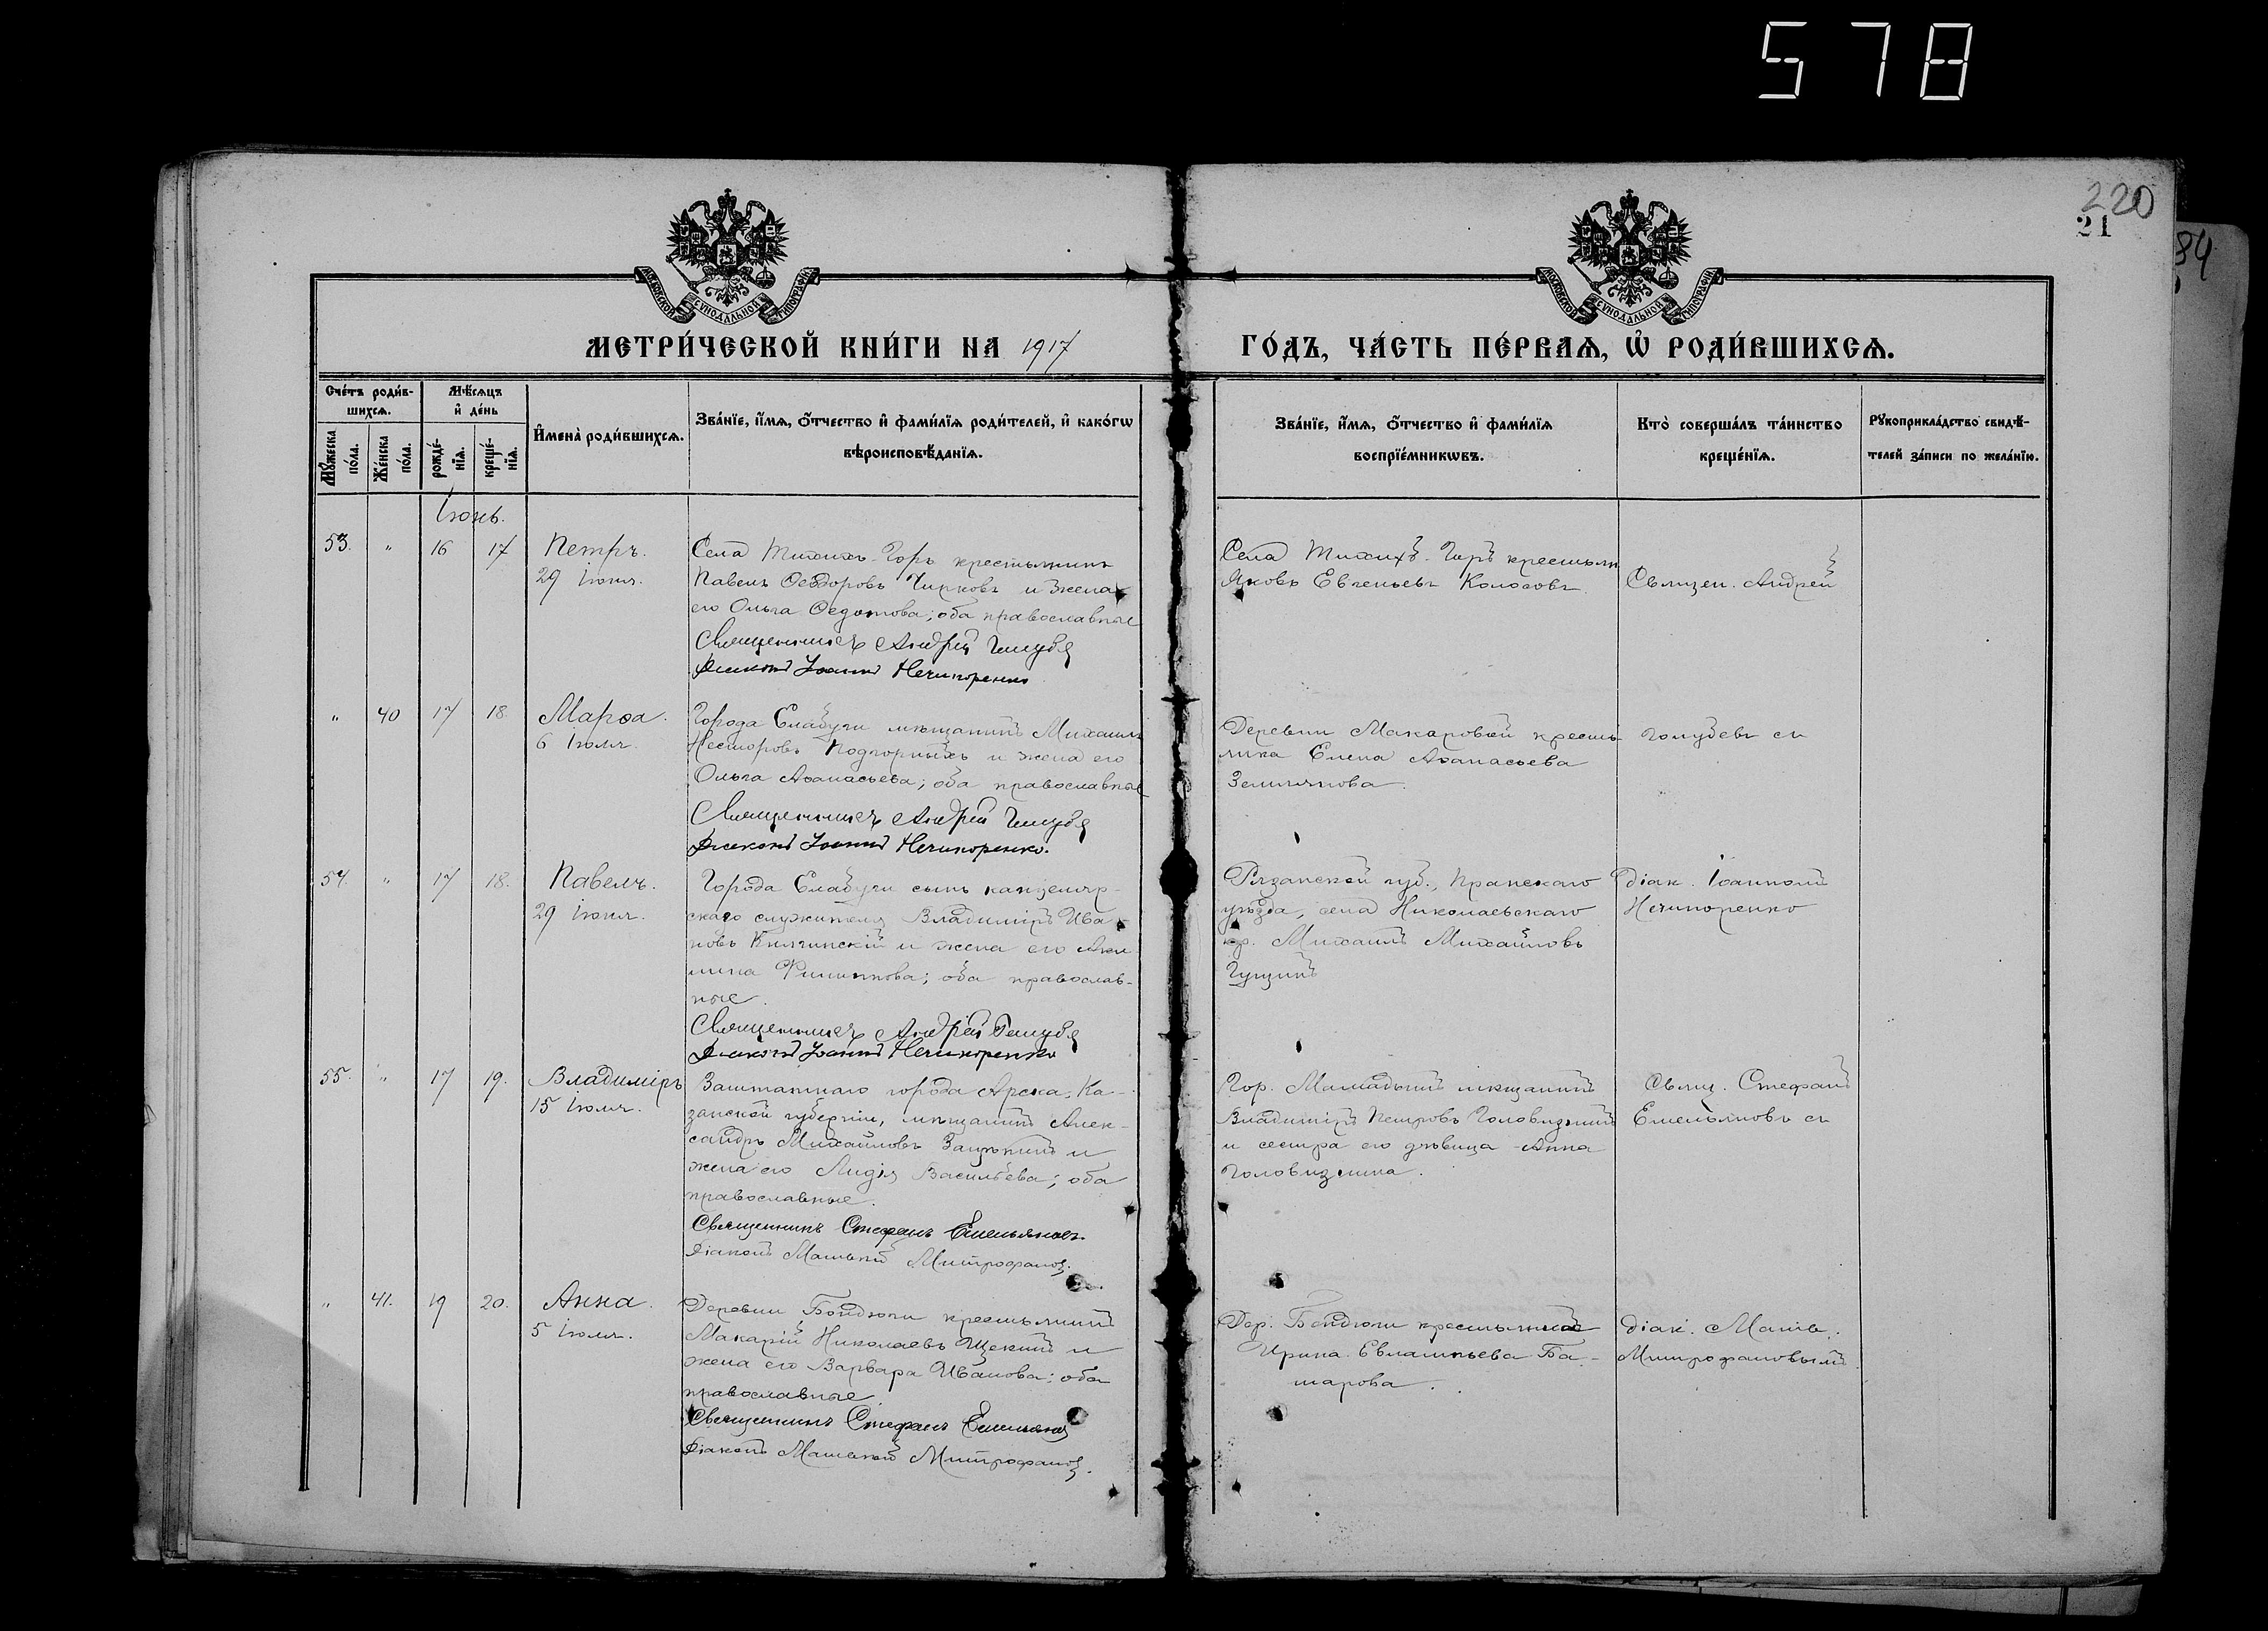 578
220
21
84
МОСКОВСКОЙ СѴНОДАЛЬНОЙ ТИПОГРАФІИ
МОСКОВСКОЙ СѴНОДАЛЬНОЙ ТИПОГРАФІИ
МЕТРИ́ЧЕСКОЙ КНИ́ГИ НА 1917
ГО́ДЪ, ЧА́СТЬ ПЕ́РВАѦ, Ѡ҆ РОДИ́ВШИХСѦ.
Сче́тъ роди́в-
шихсѧ.
Мѣ́сѧцъ
и҆ де́нь
Мꙋ́жеска по́ла.
Же́нска по́ла.
рожде́-нїѧ.
креще́-нїѧ.
И҆мена̀ роди́вшихсѧ.
Зва́нїе, и҆́мѧ, ѻ҆́тчество и҆ фами́лїѧ роди́телей, и҆ како́гѡ
вѣроисповѣ́данїѧ.
Зва́нїе, и҆́мѧ, ѻ҆́тчество и҆ фами́лїѧ
воспрїе́мникѡвъ.
Кто̀ соверша́лъ та́инство
креще́нїѧ.
Рꙋкоприкла́дство свидѣ́-
телей за́писи по жела́нїю.
Іюнь.
53. " 16 17 Петръ.
29 Іюня.
Села Тихихъ-Горъ крестьянинъ
Павелъ Ѳеодоровъ Чирковъ и жена
его Ольга Ѳедотова; оба православные
Священникъ Андрей Голубе
Діаконъ Іоаннъ Нечипоренко
Села Тихихъ-Горъ крестьян
Яковъ Евгеньевъ Колосовъ.
Священ. Андрей
" 40 17 18. Марѳа.
6 Іюля.
Города Елабуги мѣщанинъ Михаилъ
Несторовъ Подгорныхъ и жена его
Ольга Аѳанасьева; оба православные
Священникъ Андрей Голубе
Діаконъ Іоаннъ Нечипоренко.
Деревни Макаровки кресть-
янка Елена Аѳанасьева
Землянова.
Голубевъ съ
54. " 17 18. Павелъ.
29 Іюня.
Города Елабуги сынъ канцеляр-
скаго служителя Владиміръ Ива-
новъ Княгинскій и жена его Аки-
лина Филиппова; оба православ-
ные.
Священникъ Андрей Голубе
Діаконъ Іоаннъ Нечипоренко
Рязанской губ., Пронскаго
уѣзда, села Николаевскаго
кр. Михаилъ Михайловъ
Гущинъ
діак. Іоанномъ
Нечипоренко
55. " 17 19. Владиміръ
15 Іюля.
Заштатнаго города Арска, Ка-
занской губерніи, мѣщанинъ Алек-
сандръ Михайловъ Зацѣпинъ и
жена его Лидія Васильева; оба
православные.
Священникъ Стефанъ Емельяновъ.
Діаконъ Матѳей Митрофановъ.
Гор. Мамадыша мѣщанинъ
Владиміръ Петровъ Головизнинъ
и сестра его дѣвица Анна
Головизнина.
Свящ. Стефанъ
Емельяновъ съ
" 41. 19 20. Анна.
5 Іюля.
Деревни Бондюги крестьянинъ
Макарій Николаевъ Щекинъ и
жена его Варвара Иванова; оба
православные.
Священникъ Стефанъ Емельянов
Діаконъ Матѳей Митрофановъ.
Дер. Бондюги крестьянка
Ирина Евлампьева Ба-
шарова.
діак. Матѳ.
Митрофановымъ